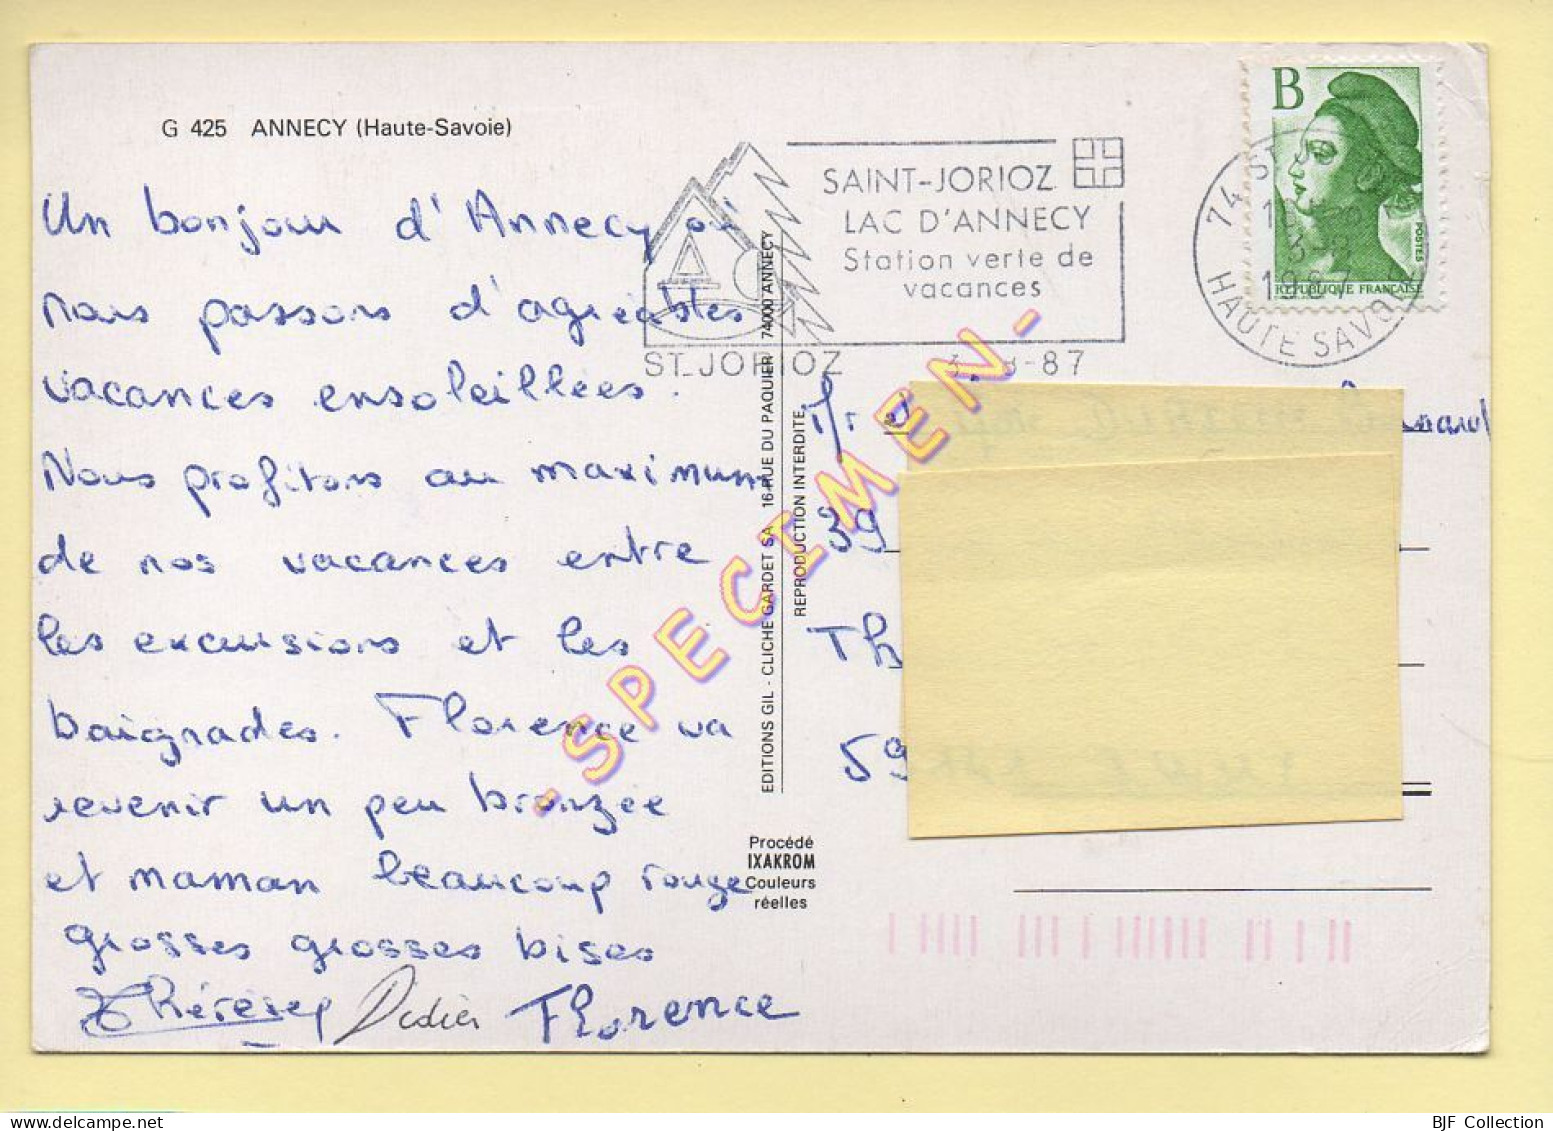 G 425 ANNECY (Haute-Savoie)
Un bonjour d'Annecy où
nous passons d'agréables
vacances ensoleillées.
Nous profitons au maximum
de nos vacances entre
les excursions et les
baignades. Florence va
revenir un peu bronzée
et maman beaucoup rouge
grosses grosses bises
Thérèse Didier Florence
SAINT-JORIOZ
LAC D'ANNECY
Station verte de
vacances
ST JORIOZ 3-8-87
B
POSTES
REPUBLIQUE FRANÇAISE
74 ST
3-8
1987
HAUTE SAVOIE
EDITIONS GIL - CLICHE GARDET SA 16 RUE DU PAQUIER 74000 ANNECY
REPRODUCTION INTERDITE
Procédé
IXAKROM
Couleurs
réelles
-SPECIMEN-
39
Th
59
BJF Collection